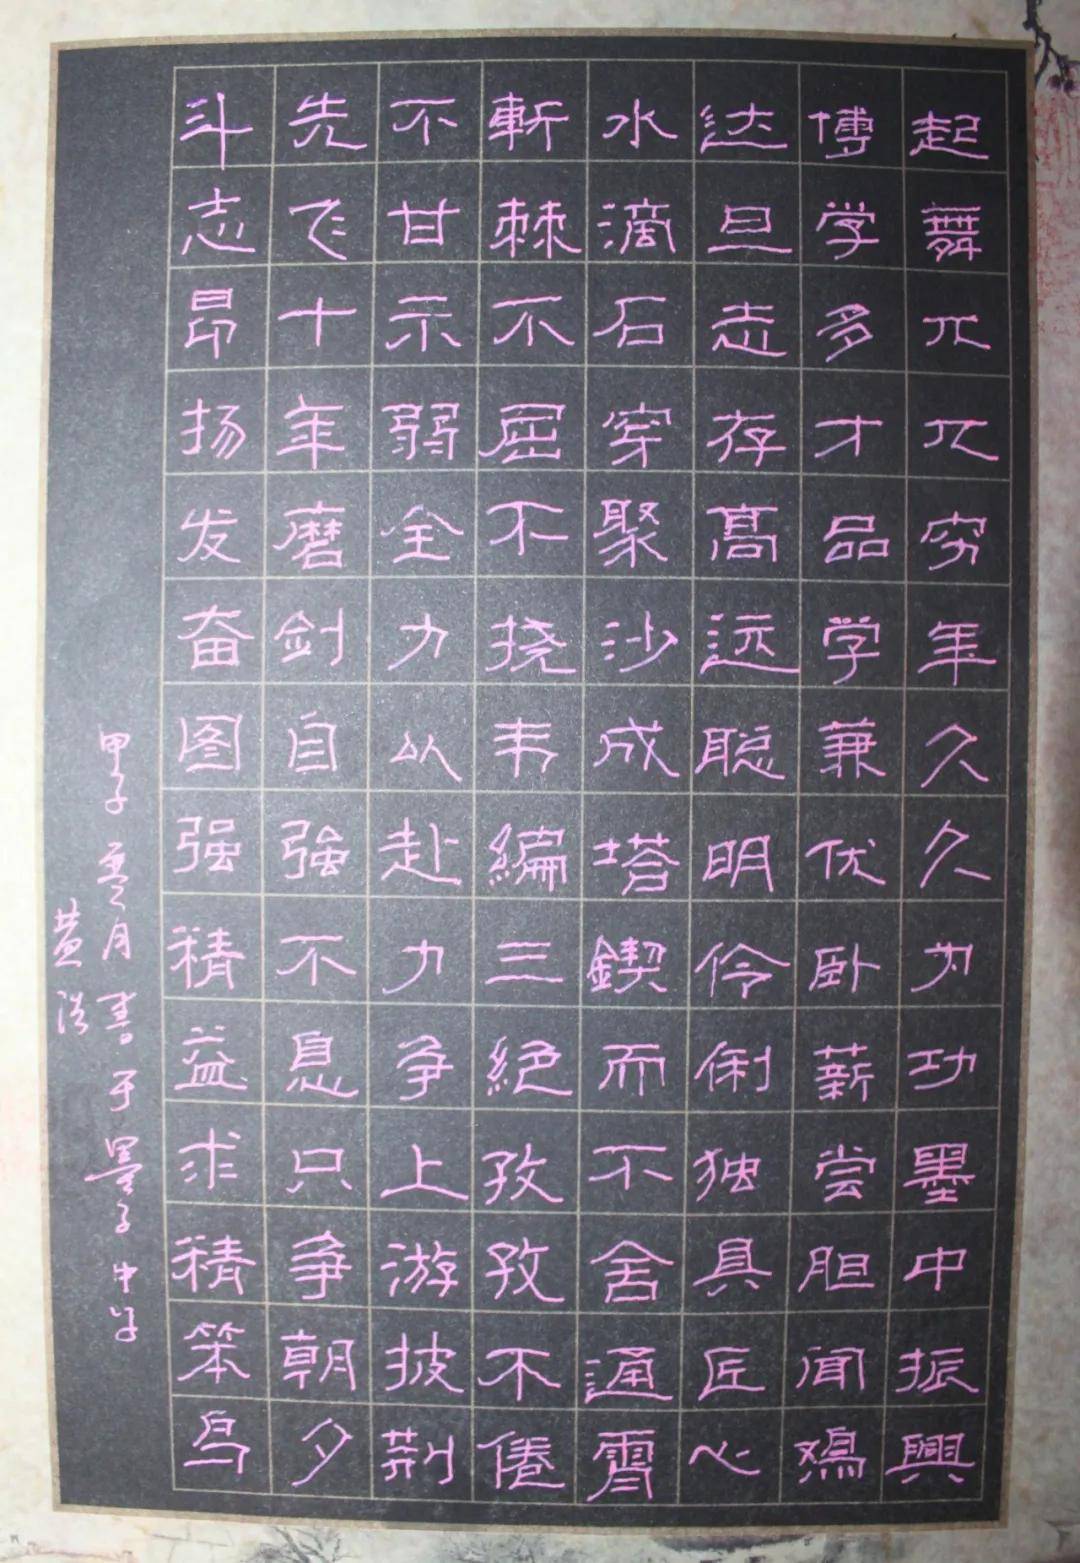 斗志昂扬发奋图强精益求精笨鸟
先飞十年磨剑自強不息只争朝夕
不甘示弱全力以赴力争上游披荆
斬棘不屈不挠韦編三絕孜孜不倦
水滴石穿聚沙成塔鍥而不舍通霄
达旦志存高远聪明伶俐独具匠心
博学多才品学兼优卧薪尝胆闻鸡
起舞兀兀穷年久久为功墨中振興
甲子月书于墨子中学
黄